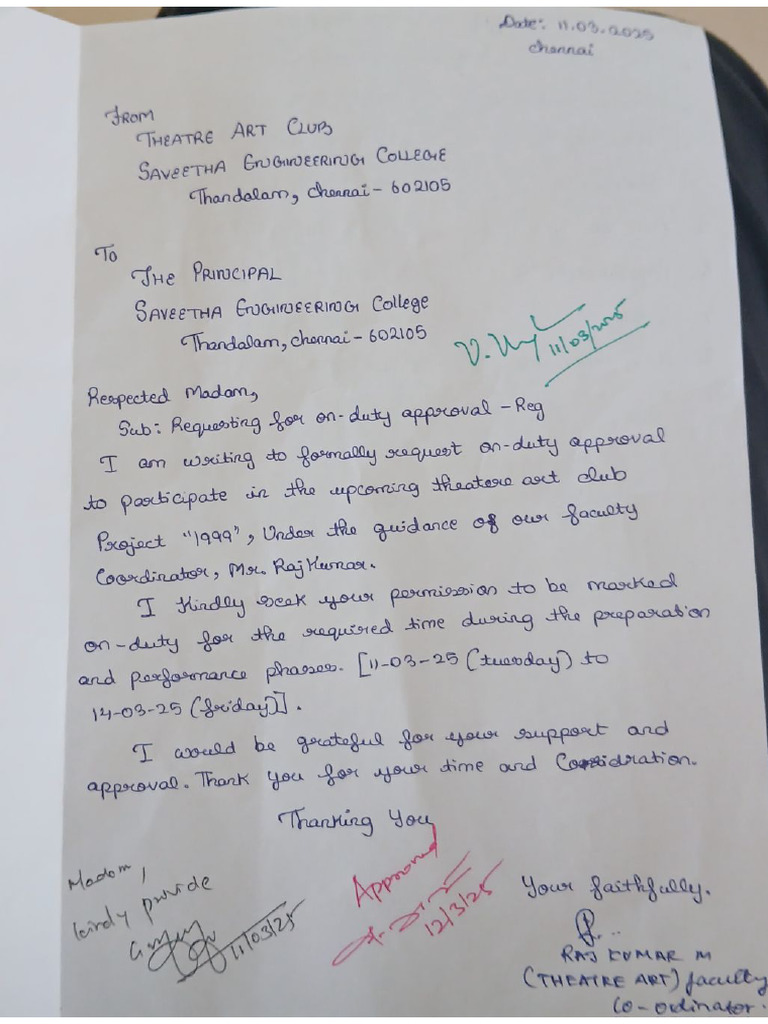 Date: 11.03.2025
Chennai
From
Theatre Art Club
Saveetha Engineering College
Thandalam, Chennai - 602105
To
The Principal
Saveetha Engineering College
Thandalam, Chennai - 602105
11/03/2025
Respected Madam,
Sub: Requesting for on-duty approval - Reg
I am writing to formally request on-duty approval
to participate in the upcoming theatere art club
Project "1999", Under the guidance of our faculty
Coordinator, Mr. Raj Kumar.
I Kindly seek your permission to be marked
on-duty for the required time during the preparation
and performance phases. [11-03-25 (tuesday) to
14-03-25 (friday)].
I would be grateful for your support and
approval. Thank you for your time and Considration.
Thanking You
Madam,
kindly provide
11/03/25
Approved
12/3/25
Your faithfully.
RAJ KUMAR M
(THEATRE ART) faculty
Co-ordinator.